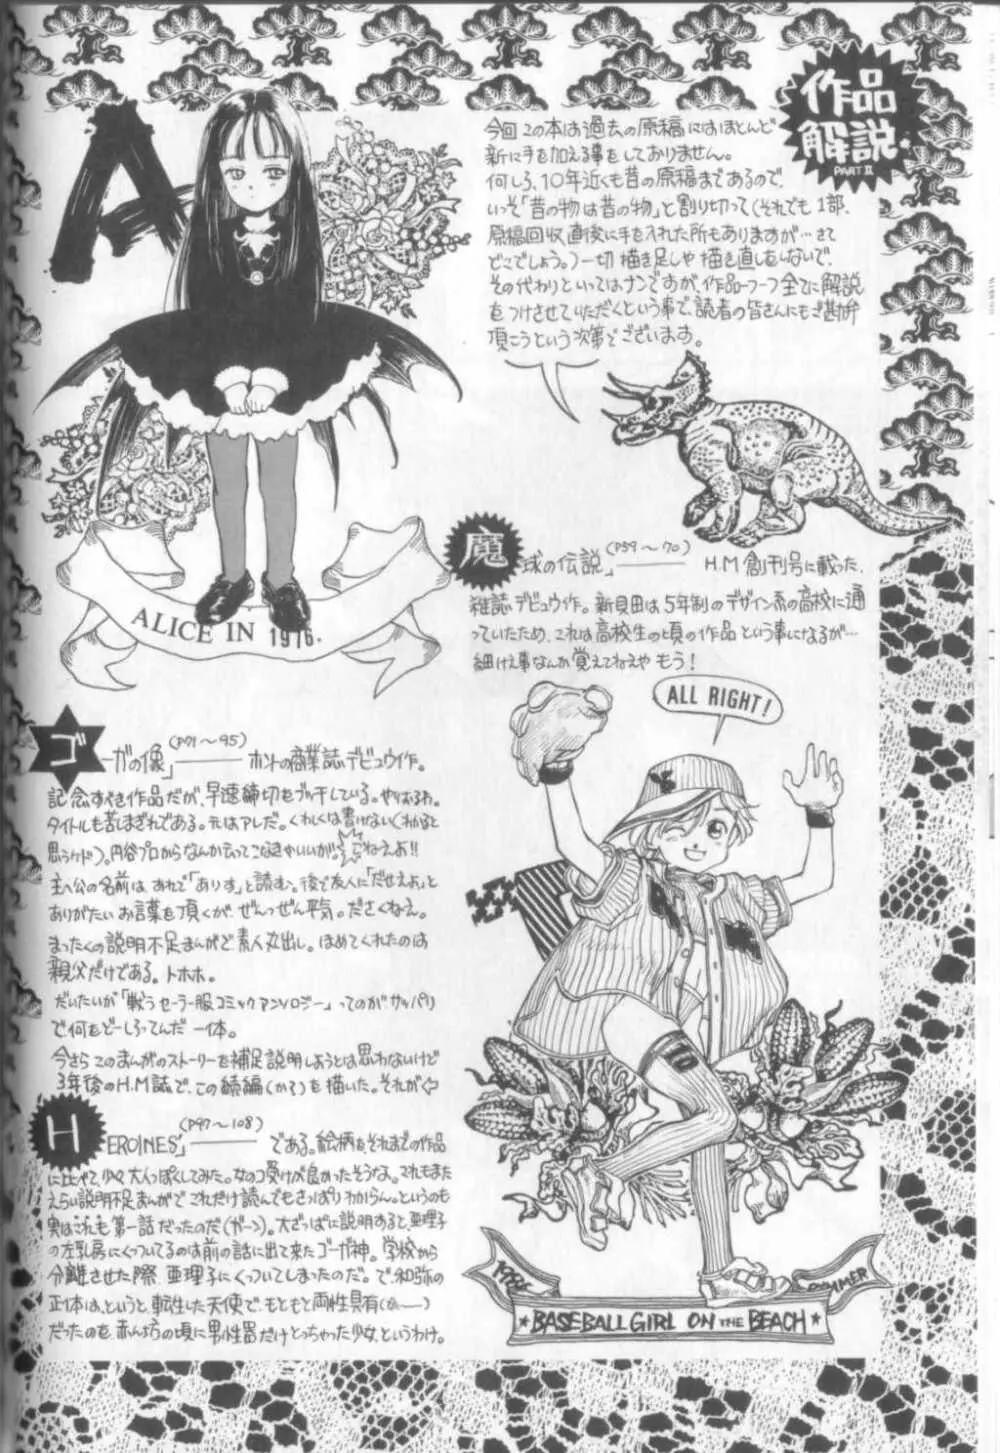 作品
解説
PART II
今回この本は過去の原稿にはほとんど
新に手を加える事をしておりません。
何しろ、10年近くも昔の原稿まであるので、
いっそ「昔の物は昔の物」と割り切って(それでも1部、
原稿回収直後に手を入れた所もありますが…さて
どこでしょう。)一切描き足しや描き直しをしないで、
その代わりといってはナンですが、作品一つ一つ全てに解説
をつけさせていただくという事で、読者の皆さんにもご勘弁
頂こうという次第でございます。
A
ALICE IN 1976.
魔球の伝説」(P59～70) H.M創刊号に載った、
雑誌デビュウ作。新貝田は5年制のデザイン系の高校に通
っていたため、これは高校生の頃の作品という事になるが…
細けえ事なんか覚えてねえや もう!
ゴーガの像」(P71～95) ホントの商業誌デビュウ作。
記念すべき作品だが、早速締切をブッ千している。やりおるわ。
タイトルも苦しまぎれである。元はアレだ。くわしくは書けない(わかると
思うケド)。円谷プロからなんか云ってこなきゃいいが。こねえよ!!
主人公の名前は、あれで「ありす」と読む。後で友人に「だせえよ」と
ありがたいお言葉を頂くが、ぜんっぜん平気。ださくねえ。
まったくの説明不足まんがど素人丸出し。ほめてくれたのは
親父だけである。トホホ。
だいたいが「戦うセーラー服コミックアンソロジー」ってのがサッパリ
で何をどーしろってんだ 一体。
今さらこのまんがのストーリーを補足説明しようとは思わないけど
3年後のH.M誌で、この続編(かな)を描いた。それが
HEROINES」(P97～108) である。絵柄もそれまでの作品
に比べて少々大人っぽくしてみた。女のコ受けが良かったそうな。これもまた
えらい説明不足まんがで これだけ読んでもさっぱりわからん。というのも
実はこれも第一話だったのだ(ガーン)。大ざっぱに説明すると、亜理子
の左乳房にくっついてるのは前の話に出て来たゴーガ神。学校から
分離させた際、亜理子にくっついてしまったのだ。で和弥の
正体は、というと、転生した天使で、もともと両性具有
だったのを赤ん坊の頃に男性器だけとっちゃった少女、というわけ。
ALL RIGHT!
BASEBALL GIRL ON THE BEACH